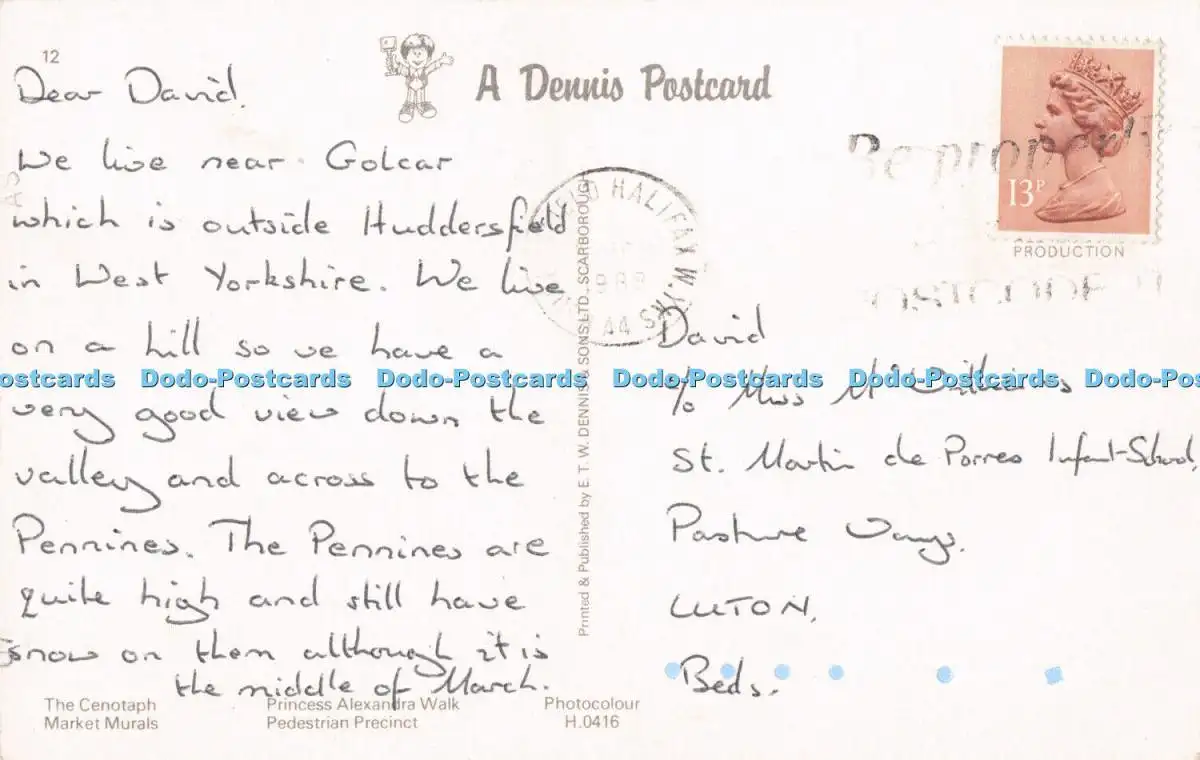 12
A Dennis Postcard
Dear David.
We live near Golcar
which is outside Huddersfield
in West Yorkshire. We live
on a hill so we have a
very good view down the
valley and across to the
Pennines. The Pennines are
quite high and still have
snow on them although it is
the middle of March.
The Cenotaph
Market Murals
Princess Alexandra Walk
Pedestrian Precinct
Photocolour
H.0416
Printed & Published by E. T. W. DENNIS & SONS LTD., SCARBOROUGH
HALIFAX W.
Be properly
POSTCODE
13P
PRODUCTION
David
c/o Miss McWilliams
St. Martin de Porres Infant School,
Pasture Ways.
LUTON,
Beds.
Dodo-Postcards Dodo-Postcards Dodo-Postcards Dodo-Postcards